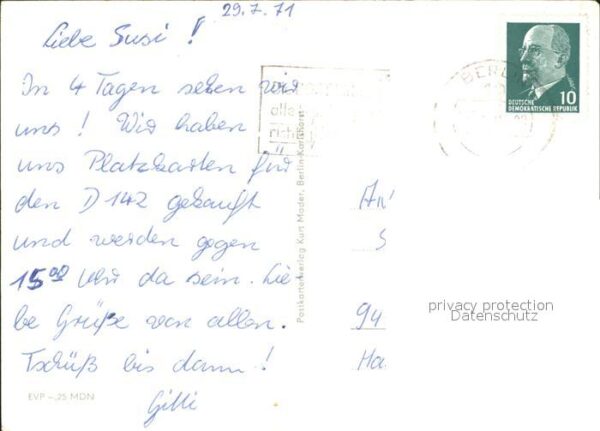 29.7.71
Liebe Susi!
In 4 Tagen sehen wir
uns! Wir haben
uns Platzkarten für
den D 142 gekauft
und werden gegen
15 00 Uhr da sein. Lie-
be Grüße von allen.
Tschüß bis dann!
Gitti
EVP -,25 MDN
Postkartenverlag Kurt Mader, Berlin-Karlshorst
BERLIN
10
DEUTSCHE
DEMOKRATISCHE REPUBLIK
94
Ha
privacy protection
Datenschutz